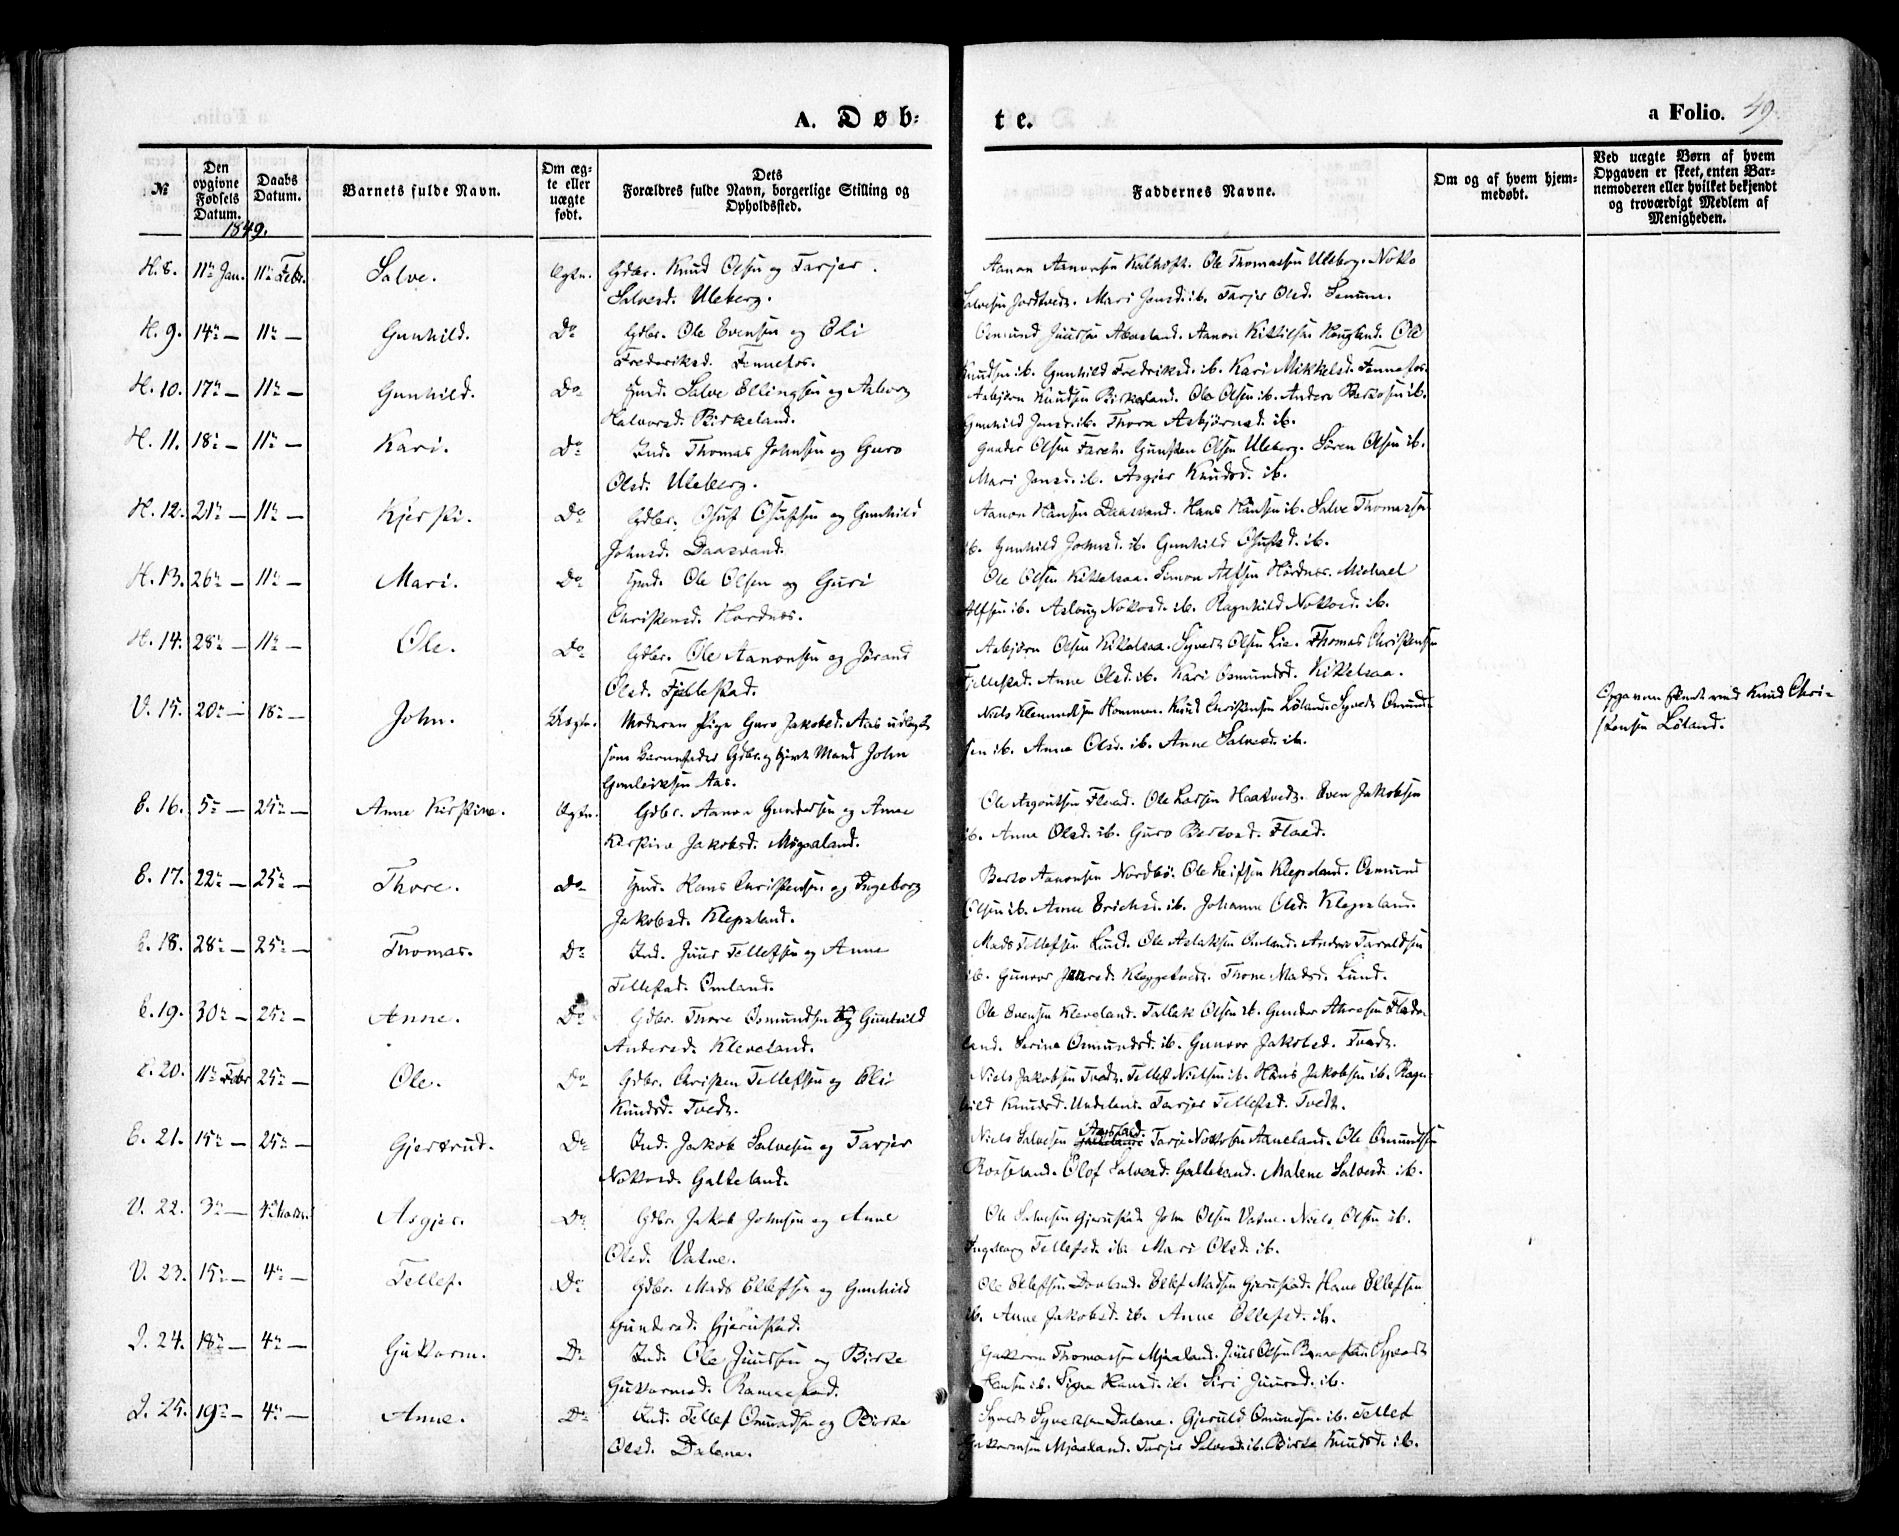 A. Døb=
te.
a Folio. 49.
№
Den opgivne Fødsels Datum.
Daabs Datum.
Barnets fulde Navn.
Om æg-te eller uægte født.
Dets Forældres fulde Navn, borgerlige Stilling og Opholdssted.
Faddernes Navne.
Om og af hvem hjem-medøbt.
Ved uægte Børn af hvem Opgaven er skeet, enten Bar-nemoderen eller hvilket bekjendt og troværdigt Medlem af Menigheden.
1849.
H. 8. 11te Jan. 11te Febr. Salve. Ægte. Gdbr. Knud Olsen og Tarjer
Salvesd. Uleberg.
Ole Thomassen Uleberg. Notto
Salvesen Mari Jensd. ib. Tarjer Olsd. Senum.
H. 9. 14n — 11n — Gunhild. Do Gdbr. Ole Evensen og Eli
Frederiksd. Fennefos.
Osmund Juusen Abusland. Aanon Kittilsen Haugland. Ole
Knudsen ib. Gunhild Fredriksd. ib. Kari Mikkelsd. Fennefos.
H. 10. 17n — 11n — Gunhild. Do Salve Ellingsen og Aslaug
Halvorsd. Birkeland.
Asbjørn Knudsen Birkeland. Ole Olsen ib. Anders ib.
Gunhild Jensd. ib. Thora Asbjørnsd. ib.
H. 11. 18n — 11n — Kari. Do Ind. Thomas Johnsen og Guro
Olsd. Uleberg.
Gunder Olsen Gunsten Olsen Uleberg. Søren Olsen ib.
Mari Jensd. ib. Asgjer Knudsd. ib.
H. 12. 21n — 11n — Kjersti. Do Gdbr. Osuf Osufsen og Gunhild
Johnsd. Daasvand.
Aanon Hansen Daasvand. Hans Hansen ib. Salve Thomassen
ib. Gunhild Johnsd. ib. Gunhild Osufsd. ib.
H. 13. 26n — 11n — Mari. Do Ole Olsen og Guri
Christensd. Hordnes.
Ole Olsen Kittelsaa. Simon Alfsen Hordnes. Michael
Alfsen ib. Aslaug Nottosd. ib. Ragnhild Nottosd. ib.
H. 14. 28n — 11n — Ole. Do Gdbr. Ole Aanonsen og Jørand
Olsd. Fjellestad.
Asbjørn Olsen Kittelsaa. Syvert Olsen Lie. Thomas Christensen
Fjellestad. Anne Olsd. ib. Kari Osmundsd. Kittelsaa.
V. 15. 20n — 18n — John. Uægte. Moderen Pige Guro Jakobsd. Aas udlagt
som Barnefader Gdbr. og givt Mand John
Gunleiksen Aas.
Niels Klemmetsen Hommen. Knud Christensen Løland. Syvert Osmund-
sen ib. Anne Olsd. ib. Anne Salvesd. ib.
Opgaven skeet ved Knud Chri-
stensen Løland.
E. 16. 5n — 25n — Anne Kirstine. Ægte. Gdbr. Aanon Gundersen og Anne
Kirstine Jakobsd. Mygaland.
Ole Asgoutsen Flaad. Ole Larsen Haatvedt. Even Jakobsen
ib. Anne Olsd. ib. Guro Flaad.
E. 17. 22n — 25n — Thore. Do Hans Christensen og Ingeborg
Jakobsd. Klepsland.
Aanonsen Nordbø. Ole Leifsen Klepsland. Osmund
Olsen ib. Anne Erichsd. ib. Johanne Olsd. Klepsland.
E. 18. 28n — 25n — Thomas. Do Ind. Juus Tellefsen og Anne
Tellefsd. Omland.
Mads Tellefsen Lund. Ole Aslaksen Omland. Anders Taraldsen
ib. Gunvor Jensd. Thone Madsd. Lund.
E. 19. 30n — 25n — Anne. Do Gdbr. Thore Osmundsen og Gunhild
Andersd. Kleveland.
Ole Evensen Kleveland. Tallak Olsen ib. Gunder
land. Serine Osmundsd. ib. Gunvor Jakobsd. Tvedt.
E. 20. 11n Febr 25n — Ole. Do Gdbr. Christen Tellefsen og Eli
Knudsd. Tvedt.
Niels Jakobsen Tvedt. Tellef Nielsen ib. Hans Jakobsen ib. Ragn-
hild Knudsd. Tarjer Tellefsd. Tvedt.
E. 21. 15n — 25n — Gjertrud. Do Ind. Jakob Salvesen og Tarjer
Nottosd. Galteland.
Niels Salvesen Tarje Nottosen Ole Osmundsen
Olof Salvesd. Galteland. Malene Salvesd. ib.
V. 22. 3n — 4n Marts. Asgjer. Do Gdbr. Jakob Johnsen og Anne
Olsd. Vatne.
Ole Salvesen Gjerustad. John Olsen Vatne. Niels Olsen ib.
Ingeborg Tellefsd. ib. Mari Olsd. ib.
V. 23. 15n — 4n — Tellef. Do Gdbr. Mads Ellefsen og Gunhild
Gundersd. Gjerustad.
Ole Ellefsen Ellef Madsen Gjerustad. Hans Ellefsen
ib. Anne Jakobsd. ib. Anne Ellefsd. ib.
I. 24. 18n — 4n — Guttorm. Do Ind. Ole Juusen og Birte
Guttormsd.
Guttorm Thomassen Mjaaland. Juus Olsen Syvert
Hansen ib. Signe Hansd. ib. Siri Juusd. ib.
I. 25. 19n — 4n — Anne. Do Ind. Tellef Osmundsen og Birte
Olsd. Dalene.
Syvert Syvertsen Dalene. Gjeruld Osmundsen ib. Tellef
Guttormsen Mjaaland. Tarjer Salvesd. ib. Birte Knudsd. ib.